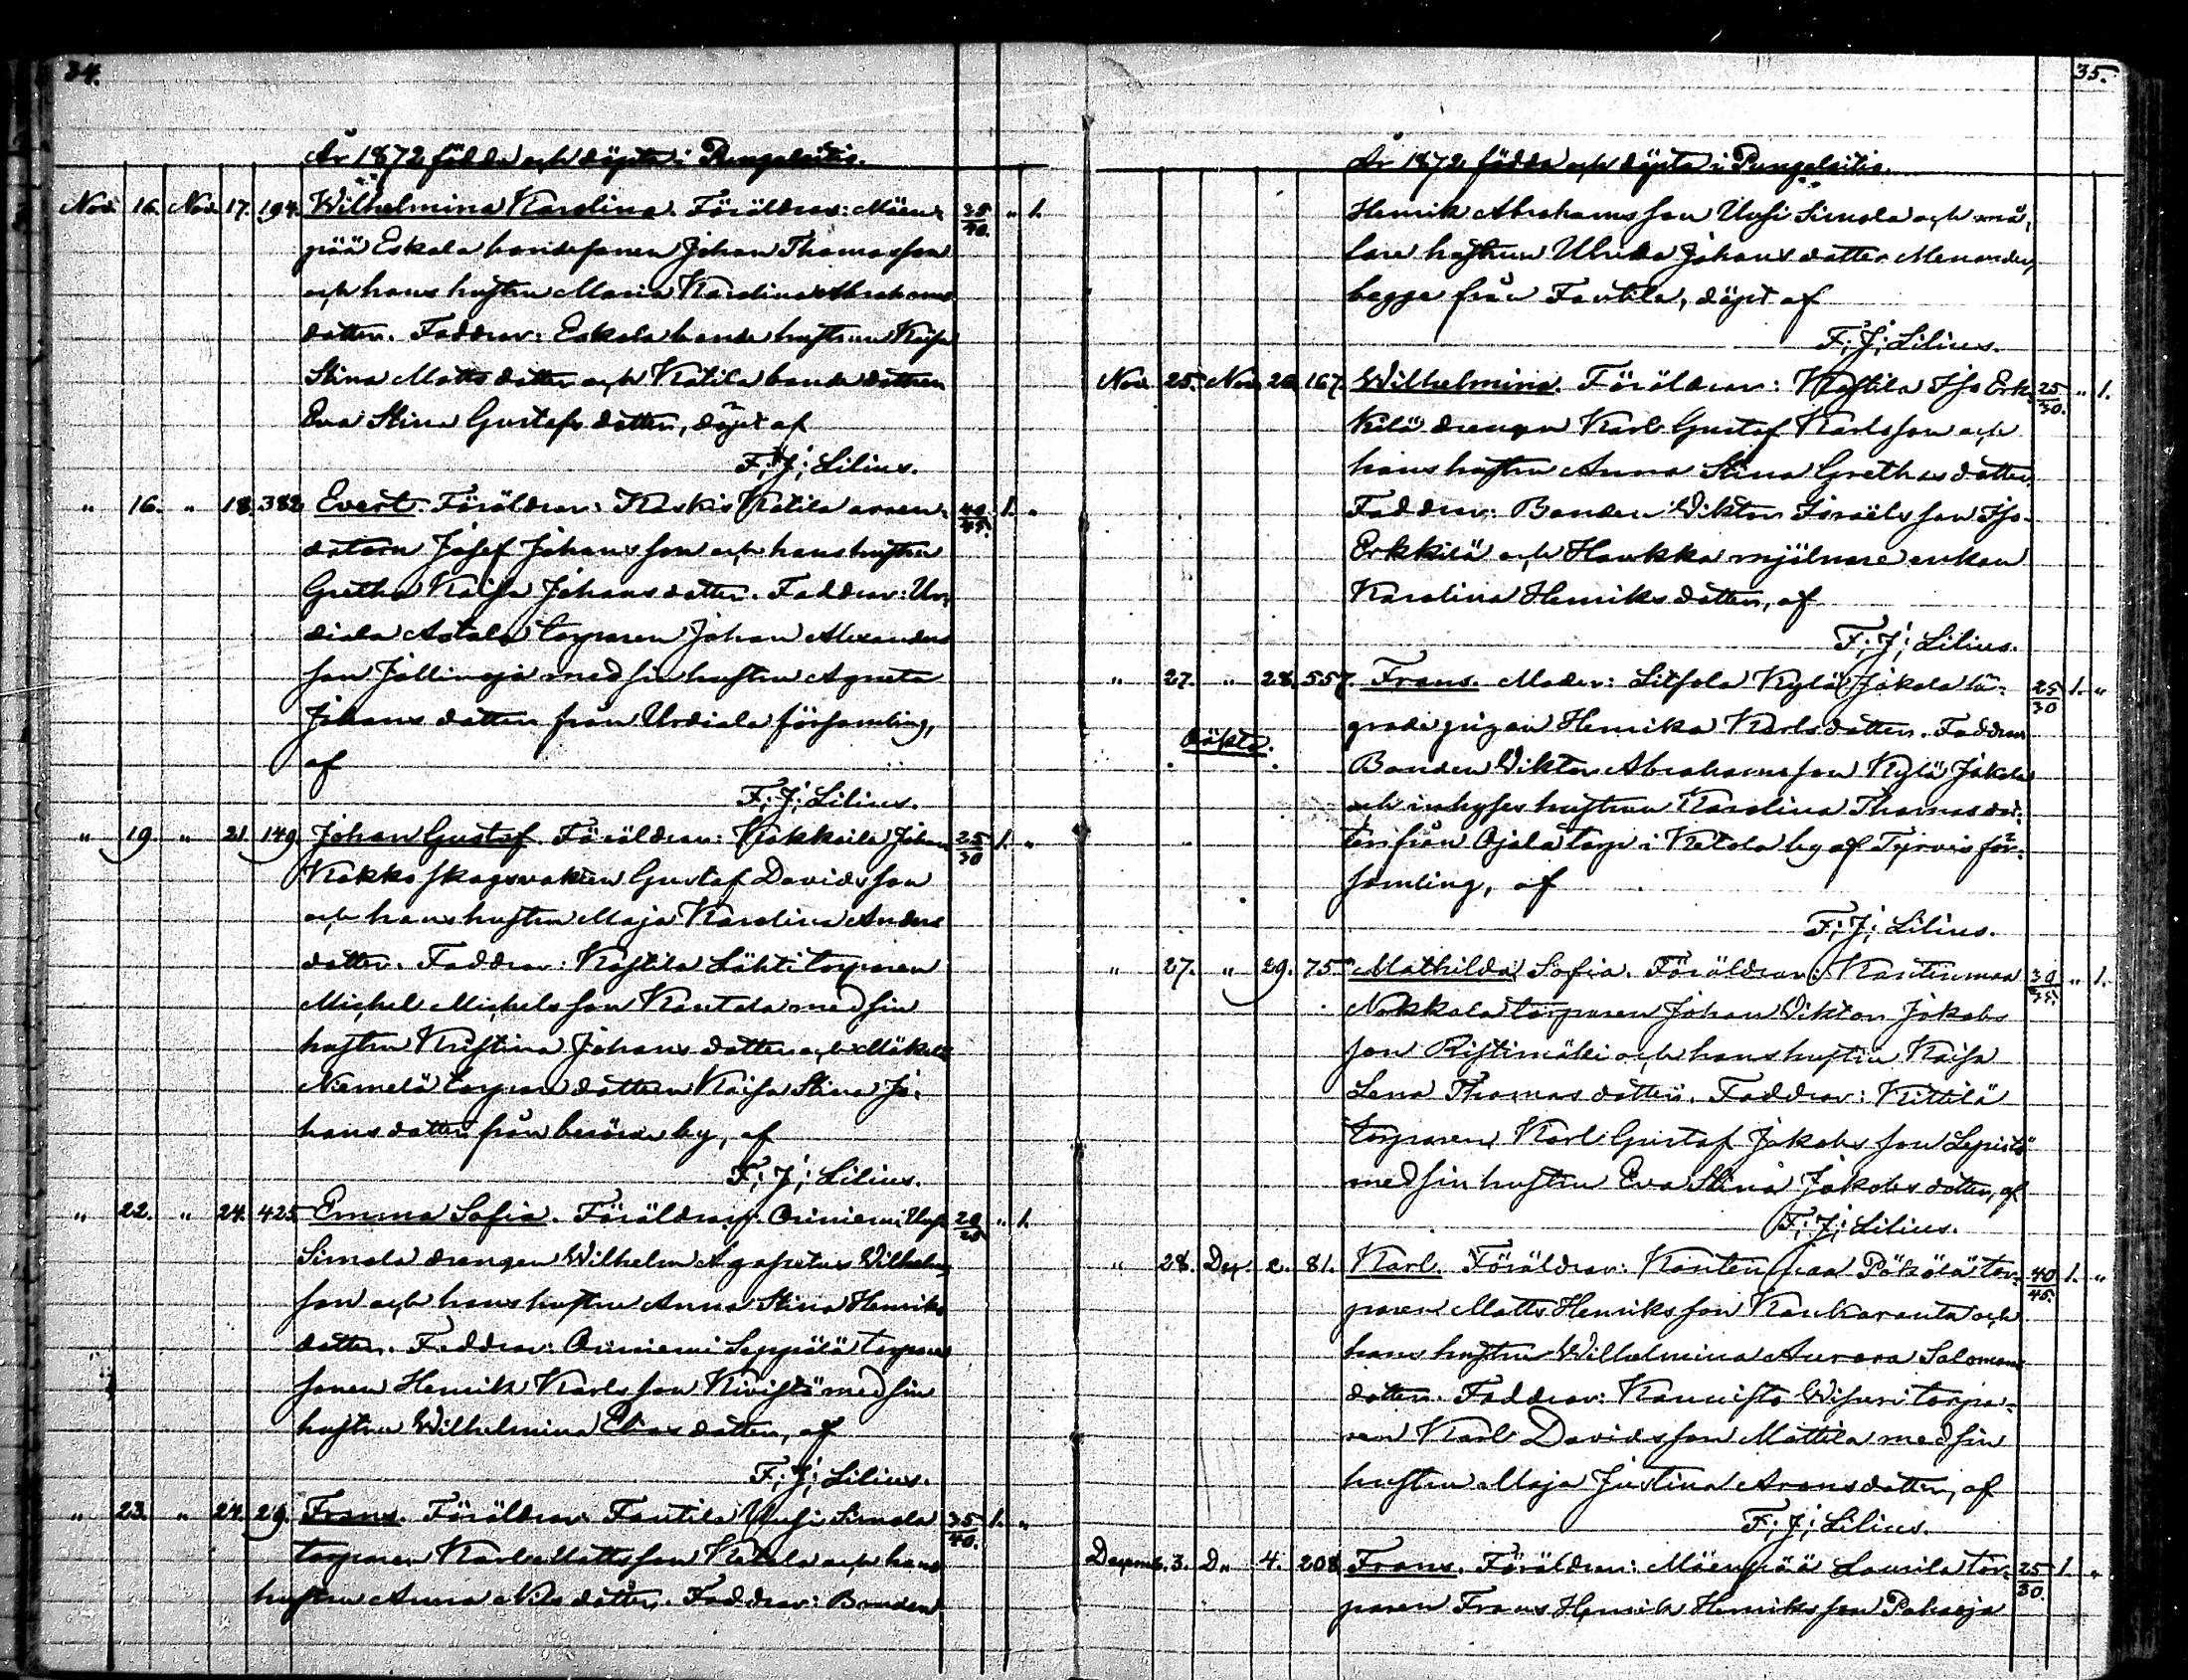 34.
År 1872 födda och döpta i Pungalaitio.
Nov. 16. Nov. 17. 194. Wilhelmina Karolina. Föräldrar: Mäen- 35/40. " 1.
pää Eskola bondesonen Johan Thomasson
och hans hustru Maria Karolina Abrahams
dotter. Faddrar: Eskola bonde hustrun Kajsa
Stina Mattsdotter och Katila bonde dottren
Eva Stina Gustafsdotter, döpt af
F. J. Lilius.
" 16. " 18. 382. Evert. Föräldrar: Kaskis Katila arren- 40/45. 1. "
datorn Josef Johansson och hans hustru
Gretha Kajsa Johansdotter. Faddrar: Ur-
diala Aotala torparen Johan Alexanders
son Jallinoja med sin hustru Agneta
Johans dotter från Urdiala församling,
af
F. J. Lilius.
" 19. " 21. 149. Johan Gustaf. Föräldrar: Kokkoila Johan 25/30 1. "
Kokko skogsvakten Gustaf Davidsson
och hans hustru Maja Karolina Anders
dotter. Faddrar: Kastila Lähti torparen
Michel Michelsson Kantala med sin
hustru Kristina Johans dotter och Mäkelä
Niemelä torpare dottern Kajsa Stina Jo-
hans dotter från berörde by, af
F. J. Lilius.
" 22. " 24. 425 Emma Sofia. Föräldrar: Oriniemi Uusi 20/25 " 1.
Simola drengen Wilhelm Agapetus Wilhelms
son och hans hustru Anna Stina Henriks
dotter. Faddrar: Oriniemi Seppälä torpare
sonen Henrik Karlsson Kivistö med sin
hustru Wilhelmina Eliasdotter, af
F. J. Lilius.
" 23. " 24. 29. Frans. Föräldrar: Fautila Uusi Simola 35/40. 1. "
torparen Karl Mattsson Ketola och hans
hustru Anna Nilsdotter. Faddrar: Bonden
35.
År 1872 födda och döpta i Pungalaitio.
Henrik Abrahamsson Uusi Simola och må-
lare hustrun Ulrika Johans dotter Menander,
begge från Fautila, döpt af
F. J. Lilius.
Nov. 25. Nov. 26. 167. Wilhelmina. Föräldrar: Kastila Iso Erk- 25/30. " 1.
kilä drengen Karl Gustaf Karlsson och
hans hustru Anna Stina Grethasdotter.
Faddrar: Bonden Viktor Israelsson Iso-
Erkkilä och Haukka mjölnare enkan
Karolina Henriksdotter, af
F. J. Lilius.
" 27. " 28. 557. Frans. Moder: Liitsola Kylä Jokola lä- 25/30 1. "
oäkta.
grade pigan Henrika Karlsdotter. Faddrar:
Bonden Viktor Abrahamsson Kylä Jokola
och inhyses hustrun Karolina Thomas dot-
ter från Ojala torp i Ketola by af Tyrvis för-
samling, af
F. J. Lilius.
" 27. " 29. 75. Mathilda Sofia. Föräldrar: Kanteenmaa 30/35. " 1.
Nokkala torparen Johan Viktor Jakobs
son Ristimäki och hans hustru Kajsa
Lena Thomas dotter. Faddrar: Kittilä
torparen Karl Gustaf Jakobsson Lepistö
med sin hustru Eva Stina Jakobsdotter, af
F. J. Lilius.
" 28. Dec. 2. 81. Karl. Föräldrar: Kanteenmaa Pökölä tor- 40/45. 1. "
paren Matts Henriksson Kankaranta och
hans hustru Wilhelmina Aurora Salomons
dotter. Faddrar: Kannisto Wisuri torpa-
ren Karl Davidsson Mattila med sin
hustru Maja Justina Aronsdotter, af
F. J. Lilius.
Decemb. 3. D. 4. 208. Frans. Föräldrar: Mäenpää Laurila tor- 25/30. 1. "
paren Frans Henrik Henriksson Pahaoja